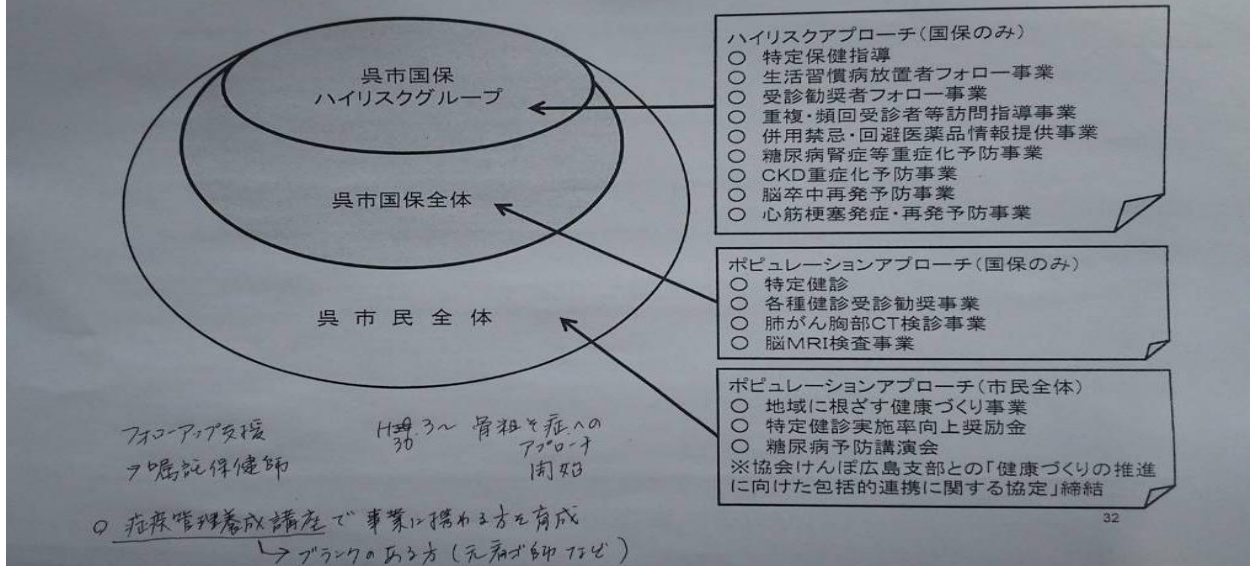 呉市国保
ハイリスクグループ
呉市国保全体
呉市民全体
ハイリスクアプローチ(国保のみ)
○ 特定保健指導
○ 生活習慣病放置者フォロー事業
○ 受診勧奨者フォロー事業
○ 重複・頻回受診者等訪問指導事業
○ 併用禁忌・回避医薬品情報提供事業
○ 糖尿病腎症等重症化予防事業
○ CKD重症化予防事業
○ 脳卒中再発予防事業
○ 心筋梗塞発症・再発予防事業
ポピュレーションアプローチ(国保のみ)
○ 特定健診
○ 各種健診受診勧奨事業
○ 肺がん胸部CT検診事業
○ 脳MRI検査事業
ポピュレーションアプローチ(市民全体)
○ 地域に根ざす健康づくり事業
○ 特定健診実施率向上奨励金
○ 糖尿病予防講演会
※協会けんぽ広島支部との「健康づくりの推進
に向けた包括的連携に関する協定」締結
32
フォローアップ支援
→嘱託保健師
H30.3~ 骨粗そ症への
アプローチ
開始
○ 疾病管理養成講座で事業に携わる方を育成
→ブランクのある方(元看ゴ師など)